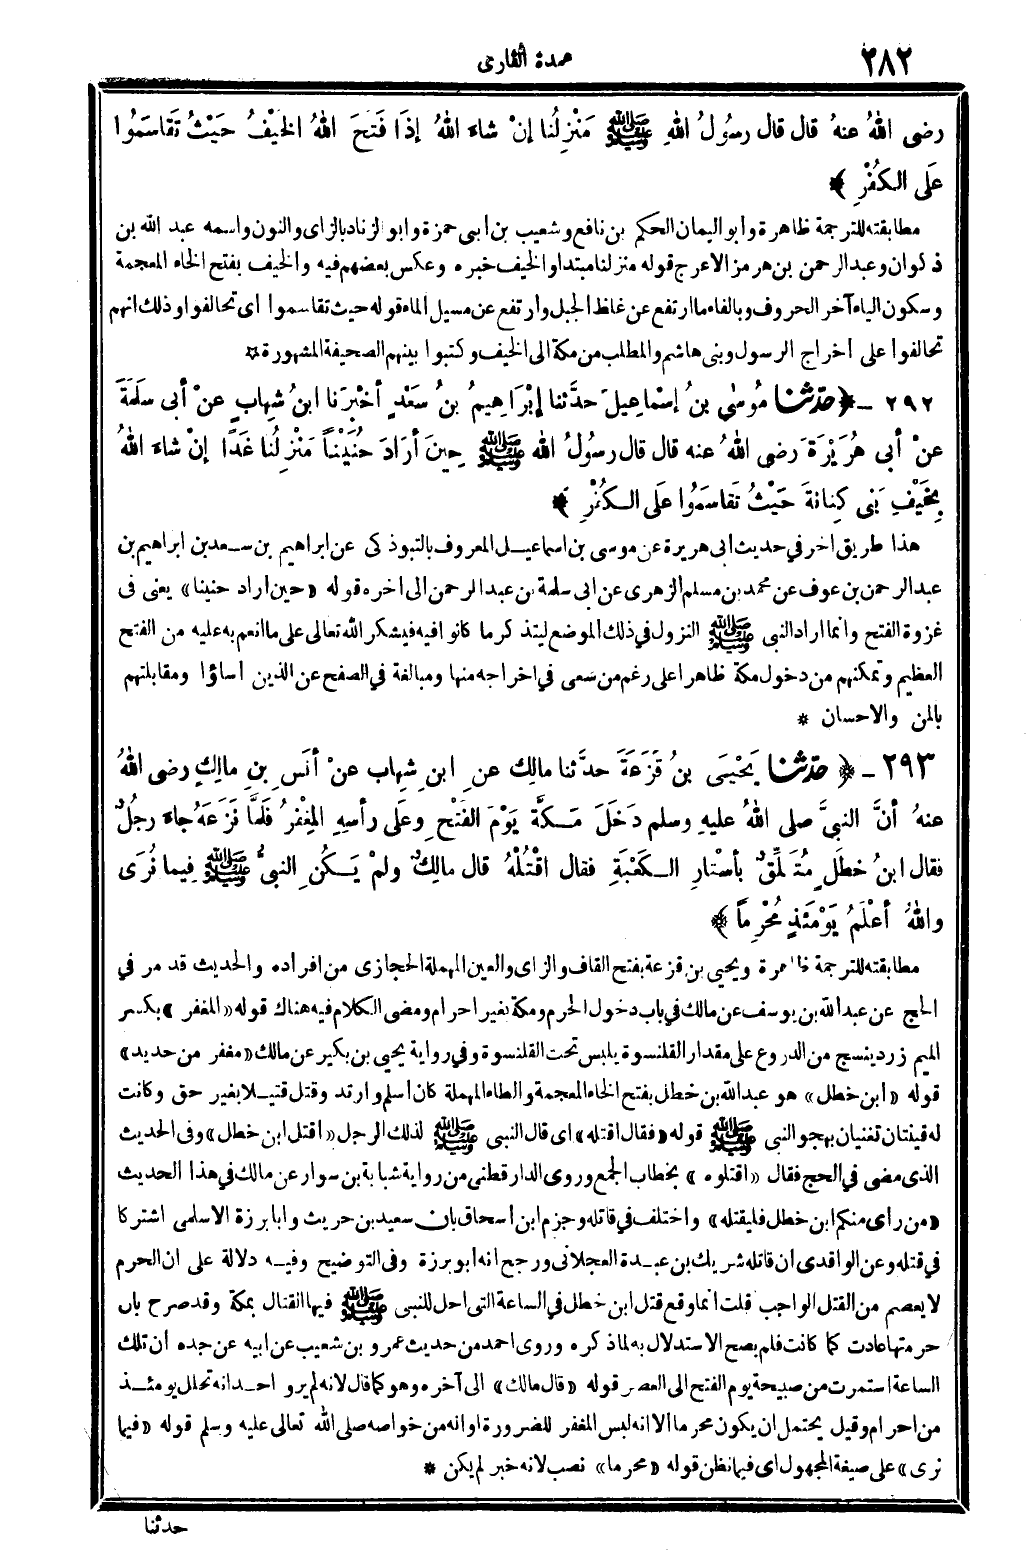 ٢٨٢
عمدة القارى
رضى اللهُ عنهُ قال قال رسُولُ اللهِ ﷺ مَنْزِلُنا إنْ شاءَ اللهُ إذَا فَتَحَ اللهُ الخَيْفُ حَيْثُ تَقاسَمُوا
عَلَى الكُفْرِ ﴾
مطابقته للترجمة ظاهرة وأبو اليمان الحكم بن نافع وشعيب بن أبى حمزة وأبو الزناد بالزاى والنون واسمه عبد الله بن
ذكوان وعبد الرحمن بن هرمز الاعرج قوله منزلنا مبتدأ والخيف خبره وعكس بعضهم فيه والخيف بفتح الخاء المعجمة
وسكون الياء آخر الحروف وبالفاء ما ارتفع عن غلظ الجبل وارتفع عن مسيل الماء قوله حيث تقاسموا اى تحالفوا وذلك انهم
تحالفوا على اخراج الرسول وبنى هاشم والمطلب من مكة الى الخيف وكتبوا بينهم الصحيفة المشهورة ☆
٢٩٢ - ﴿ حدّثنا مُوسٰى بنُ إسْماعِيلَ حدَّثنا إبْرَاهِيمُ بنُ سَعْدٍ أخْبَرَنا ابنُ شِهابٍ عنْ أبى سَلَمَةَ
عنْ أبى هُرَيْرَةَ رضى اللهُ عنه قال قال رسُولُ الله ﷺ حِينَ أرَادَ حُنَيْناً مَنْزِلُنا غَدًا إنْ شاءَ اللهُ
بِخَيْفِ بَنى كِنانةَ حَيْثُ تَقاسَمُوا عَلَى الكُفْرِ ﴾
هذا طريق اخر في حديث ابى هريرة عن موسى بن اسماعيل المعروف بالتبوذكى عن ابراهيم بن سعد بن ابراهيم بن
عبد الرحمن بن عوف عن محمد بن مسلم الزهرى عن ابى سلمة بن عبد الرحمن الى اخره قوله «حين اراد حنينا» يعنى فى
غزوة الفتح وانما اراد النبى ﷺ النزول في ذلك الموضع ليتذكر ما كانوا فيه فيشكر الله تعالى على ما انعم به عليه من الفتح
العظيم وتمكنهم من دخول مكة ظاهرا على رغم من سعى في اخراجه منها ومبالغة في الصفح عن الذين اساؤا ومقابلتهم
بالمن والاحسان *
٢٩٣ - ﴿ حدّثنا يَحْيَى بنُ قَزَعَةَ حدَّثنا مالِك عنِ ابنِ شِهاب عنْ أنَسِ بنِ مالِكٍ رضى اللهُ
عنهُ أنَّ النبىَّ صلى اللهُ عليهِ وسلم دَخَلَ مَكَّةَ يَوْمَ الفَتْحِ وعَلَى رأسِهِ المِغْفَرُ فَلَمَّا نَزَعَهُ جاءَ رجُلٌ
فقال ابنُ خطَلٍ مُتَعَلِّقٌ بأسْتارِ الكَعْبَةِ فقال اقْتُلْهُ قال مالِكٌ ولمْ يَكُنِ النبىُّ ﷺ فِيما نُرَى
واللهُ أعْلَمُ يَوْمَئذٍ مُحْرِماً ﴾
مطابقته للترجمة ظاهرة ويحيى بن قزعة بفتح القاف والزاى والعين المهملة الحجازى من افراده والحديث قد مر في
الحج عن عبد الله بن يوسف عن مالك في باب دخول الحرم ومكة بغير احرام ومضى الكلام فيه هناك قوله «المغفر» بكسر
الميم زرد ينسج من الدروع على مقدار القلنسوة يلبس تحت القلنسوة وفي رواية يحيى بن بكير عن مالك «مغفر من حديد»
قوله «ابن خطل» هو عبد الله بن خطل بفتح الخاء المعجمة والطاء المهملة كان اسلم وارتد وقتل قتيلا بغير حق وكانت
له قينتان تغنيان بهجو النبى ﷺ قوله «فقال اقتله» اى قال النبى ﷺ لذلك الرجل «اقتل ابن خطل» وفى الحديث
الذى مضى في الحج فقال «اقتلوه» بخطاب الجمع وروى الدارقطنى من رواية شبابة بن سوار عن مالك في هذا الحديث
«من رأى منكم ابن خطل فليقتله» واختلف في قاتله وجزم ابن اسحاق بان سعيد بن حريث وابا برزة الاسلمى اشتركا
في قتله وعن الواقدى ان قاتله شريك بن عبدة العجلانى ورجح انه أبو برزة وفى التوضيح وفيه دلالة على ان الحرم
لا يعصم من القتل الواجب قلت انما وقع قتل ابن خطل في الساعة التى احل للنبى ﷺ فيها القتال بمكة وقد صرح بان
حرمتها عادت كما كانت فلم يصح الاستدلال به لما ذكره وروى احمد من حديث عمرو بن شعيب عن ابيه عن جده ان تلك
الساعة استمرت من صبيحة يوم الفتح الى العصر قوله «قال مالك» الى آخره وهو كما قال لانه لم يرو احد انه تحلل يومئذ
من احرام وقيل يحتمل ان يكون محرما الا انه لبس المغفر للضرورة او انه من خواصه صلى الله تعالى عليه وسلم قوله «فيما
نرى» على صيغة المجهول اى فيما نظن قوله «محرما» نصب لانه خبر لم يكن *
حدثنا